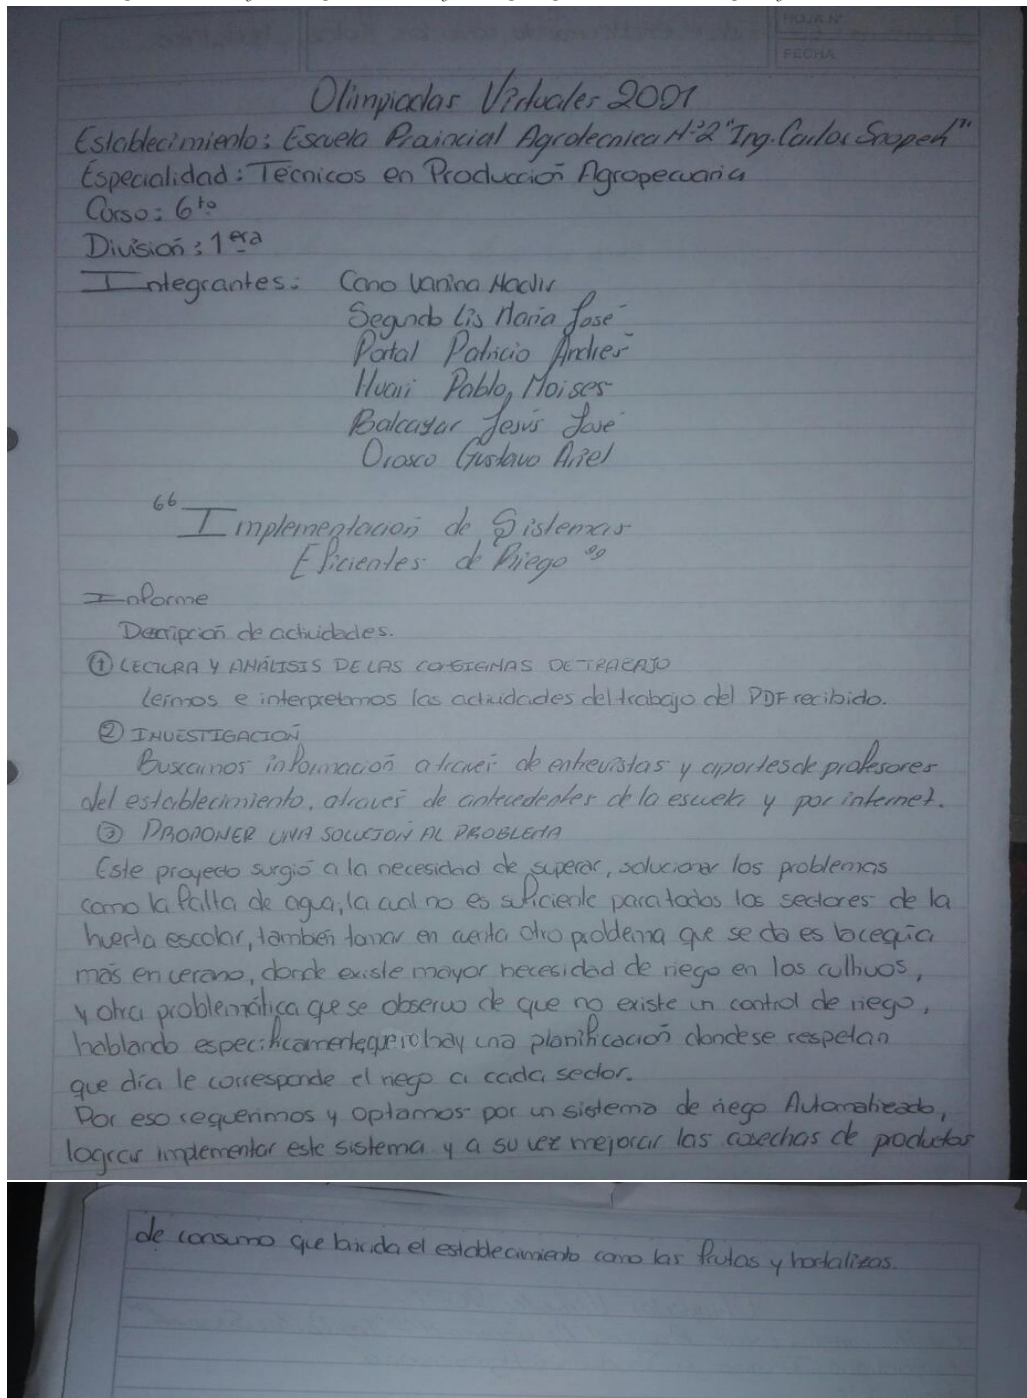 HOJA Nº
FECHA
Olimpiadas Virtuales 2001
Establecimiento: Escuela Provincial Agrotecnica Nº2 "Ing. Carlos Snopek"
Especialidad: Técnicos en Producción Agropecuaria
Curso: 6to
División: 1era
Integrantes: Cano Vanina Nadir
Segundo Lis Maria José
Portal Patricio Andrés
Huari Pablo, Moises
Balcazar Jesús José
Orosco Gustavo Ariel
"Implementación de Sistemas
Eficientes de Riego"
Informe
Descripción de actividades.
① LECTURA Y ANÁLISIS DE LAS CONSIGNAS DE TRABAJO
Leímos e interpretamos las actividades del trabajo del PDF recibido.
② INVESTIGACIÓN
Buscamos información a través de entrevistas y aportes de profesores
del establecimiento, através de antecedentes de la escuela y por internet.
③ PROPONER UNA SOLUCIÓN AL PROBLEMA
Este proyecto surgió a la necesidad de superar, solucionar los problemas
como la falta de agua, la cual no es suficiente para todos los sectores de la
huerta escolar, también tomar en cuenta otro problema que se da es la sequía
más en verano, donde existe mayor necesidad de riego en los cultivos,
y otra problemática que se observo de que no existe un control de riego,
hablando específicamente que no hay una planificación donde se respetan
que día le corresponde el riego a cada sector.
Por eso requerimos y optamos por un sistema de riego Automatizado,
lograr implementar este sistema y a su vez mejorar las cosechas de productos
de consumo que brinda el establecimiento como las frutas y hortalizas.